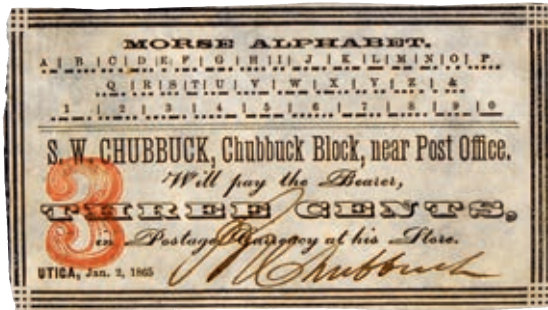 MORSE ALPHABET.
A | B | C | D | E | F | G | H | I | J | K | L | M | N | O | P
Q | R | S | T | U | V | W | X | Y | Z | &
1 | 2 | 3 | 4 | 5 | 6 | 7 | 8 | 9 | 0
S. W. CHUBBUCK, Chubbuck Block, near Post Office.
Will pay the Bearer,
3 THREE CENTS,
in Postage Currency at his Store.
UTICA, Jan. 2, 1865 Chubbuck